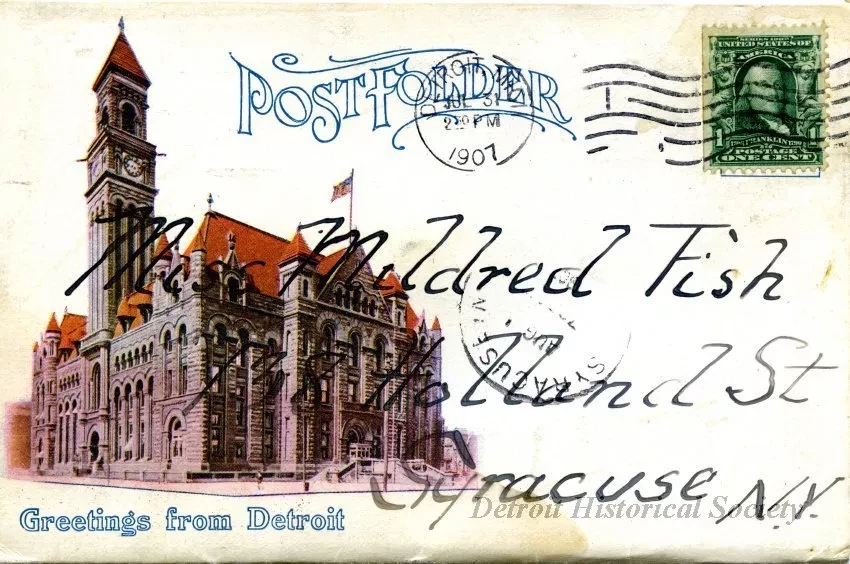 POST FOLDER
DETROIT, MICH
JUL 31
2 PM
1907
SERIES 1902
UNITED STATES OF
AMERICA
1 1
1706 FRANKLIN 1790
POSTAGE
ONE CENT
Miss Mildred Fish
Holland St
Syracuse N.Y.
SYRACUSE N.
AUG 1
Greetings from Detroit
Detroit Historical Society